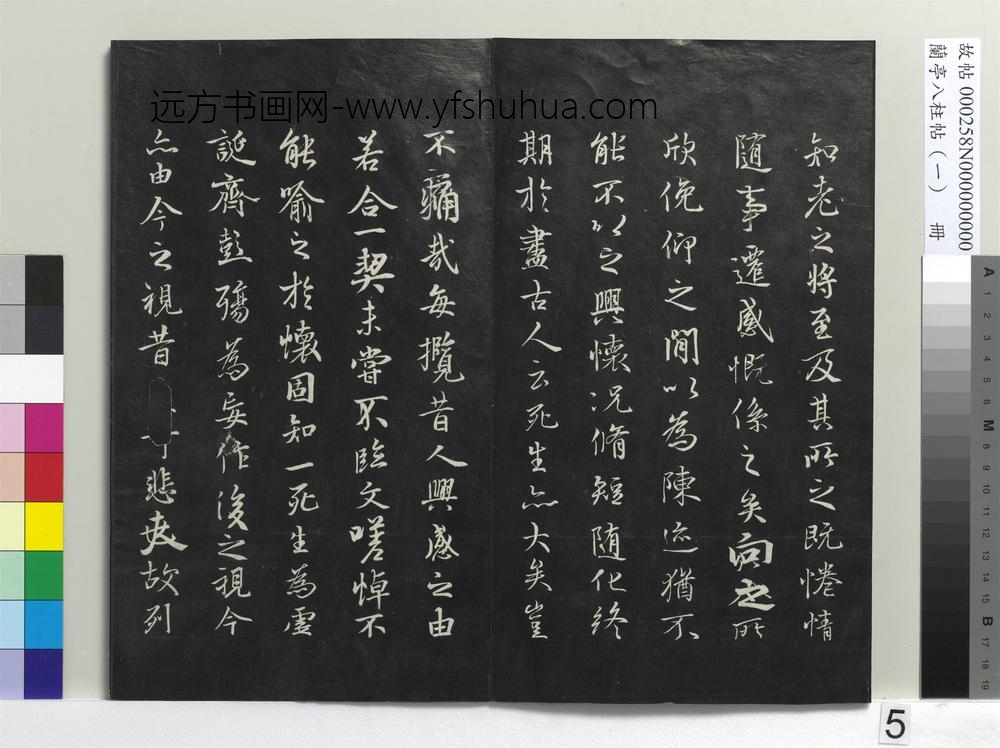 远方书画网-www.yfshuhua.com
知老之將至及其所之既惓情
隨事遷感慨係之矣向之所
欣俛仰之閒以為陳迹猶不
能不以之興懷况脩短隨化終
期於盡古人云死生亦大矣豈
不痛哉每攬昔人興感之由
若合一契未嘗不臨文嗟悼不
能喻之於懷固知一死生為虛
誕齊彭殤為妄作後之視今
亦由今之視昔悲夫故列
故帖 000258N000000000
蘭亭八柱帖(一) 冊
A 1 2 3 4 5 6 M 8 9 10 11 12 13 14 15 B 17 18 19
5